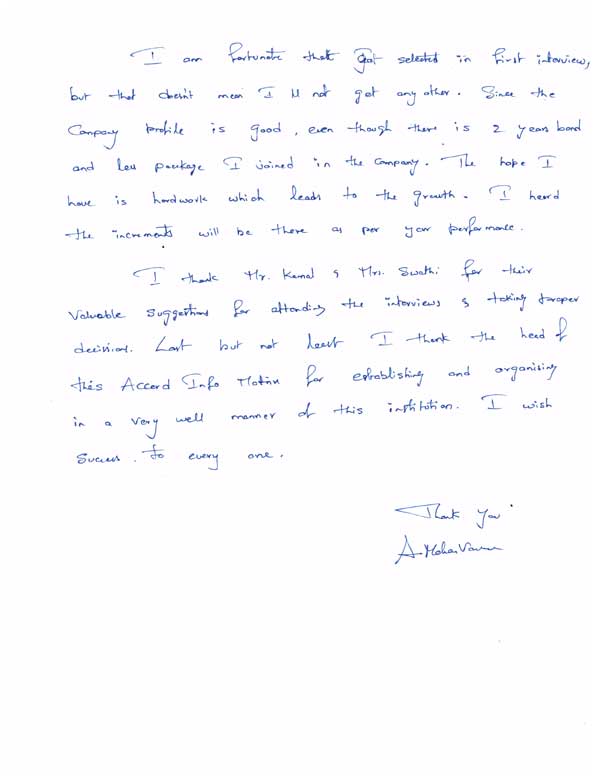 I am fortunate that got selected in first interview,
but that doesn't mean I'll not get any other. Since the
Company profile is good, even though there is 2 years bond
and less package I joined in the Company. The hope I
have is hardwork which leads to the growth. I heard
the increments will be there as per your performance.
I thank Mr. Kamal & Mrs. Swathi for their
Valuable Suggestions for attending the interviews & taking proper
decisions. Last but not least I thank the head of
this Accord Info Matrix for establishing and organising
in a very well manner of this institution. I wish
Success. to every one.
Thank you